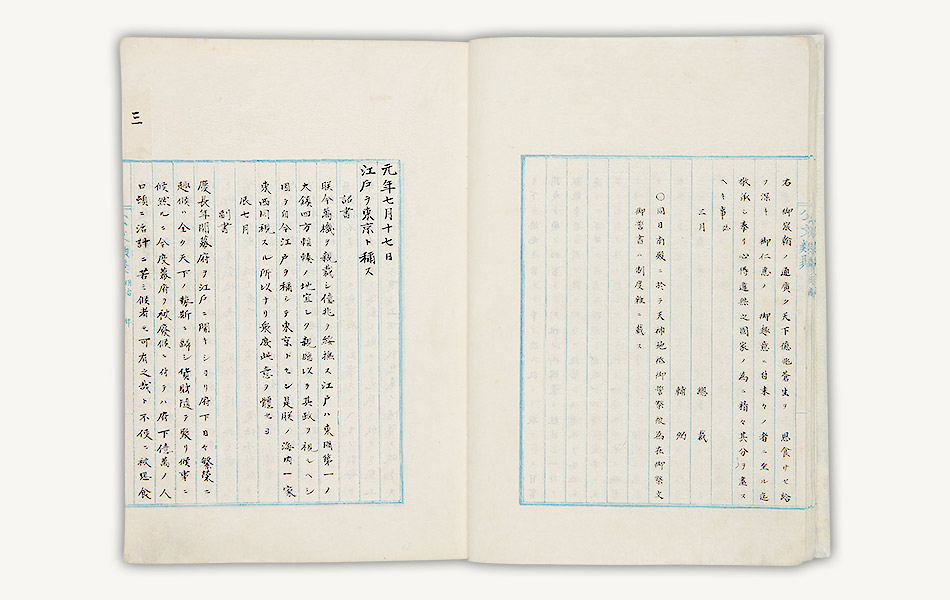 右　御宸翰ノ通廣ク天下億兆蒼生ヲ　思食サセ給
フ深キ　御仁惠ノ　御趣意ニ付末々ノ者ニ至ル迄
敬承シ奉リ心得違無之國家ノ為ニ精々其分ヲ盡ス
ヘキ事
三月　總裁
輔弼
〇同日南殿ニ於テ天神地祇御誓祭被為在御祭文
御誓書ハ制度雜ニ載ス
元年七月十七日
江戸ヲ東京ト稱ス
詔書
朕今萬機ヲ親裁シ億兆ヲ綏撫ス江戸ハ東國第一ノ
大鎮四方輻輳ノ地宜シク親臨以テ其政ヲ視ルヘシ
因テ自今江戸ヲ稱シテ東京トセン是朕ノ海内一家
東西同視スル所以ナリ衆庶此意ヲ體セヨ
辰七月
副書
慶長年間幕府ヲ江戸ニ開キシヨリ府下日々繁榮ニ
趣候ハ全ク天下ノ勢斯ニ歸シ貨財隨テ聚リ候事ニ
候然ルニ今度幕府ヲ被廢候ニ付テハ府下億萬ノ人
口頓ニ活計ニ苦ミ候者モ可有之哉ト不憫ニ被思食
三